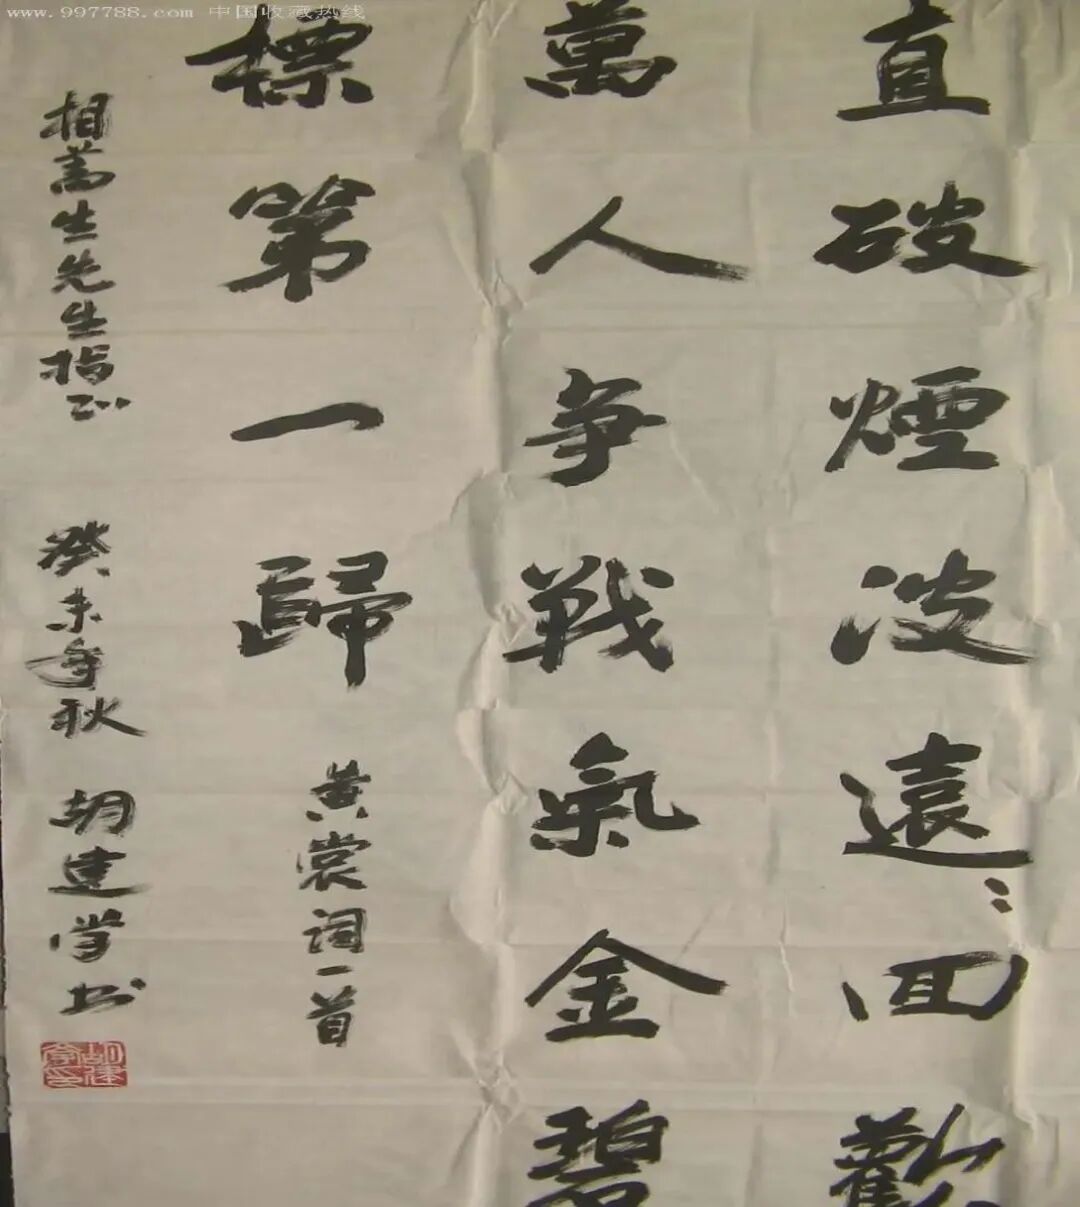 www.997788.com 中国收藏热线
直破煙波遠々回歡
萬人争戰氣金碧
標第一歸 黄裳詞一首
生先生指正 癸未年秋 胡建学书
胡建学印